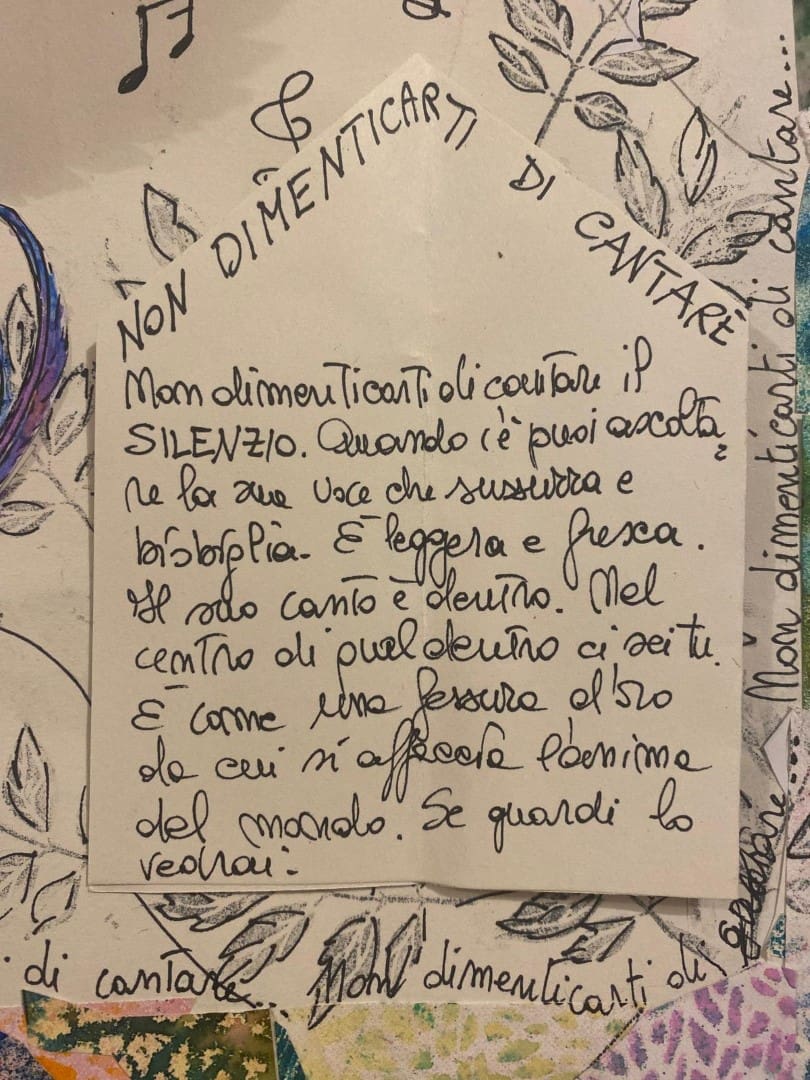 NON DIMENTICARTI DI CANTARE
Non dimenticarti di cantare il
SILENZIO. Quando c'è puoi ascolta
re la sua voce che sussurra e
bisbiglia. È leggera e fresca.
Il suo canto è dentro. Nel
centro di quel dentro ci sei tu.
È come una fessura d'oro
da cui si affaccia l'anima
del mondo. Se guardi lo
vedrai.
Non dimenticarti di cantare...
i di cantare... Non dimenticarti di